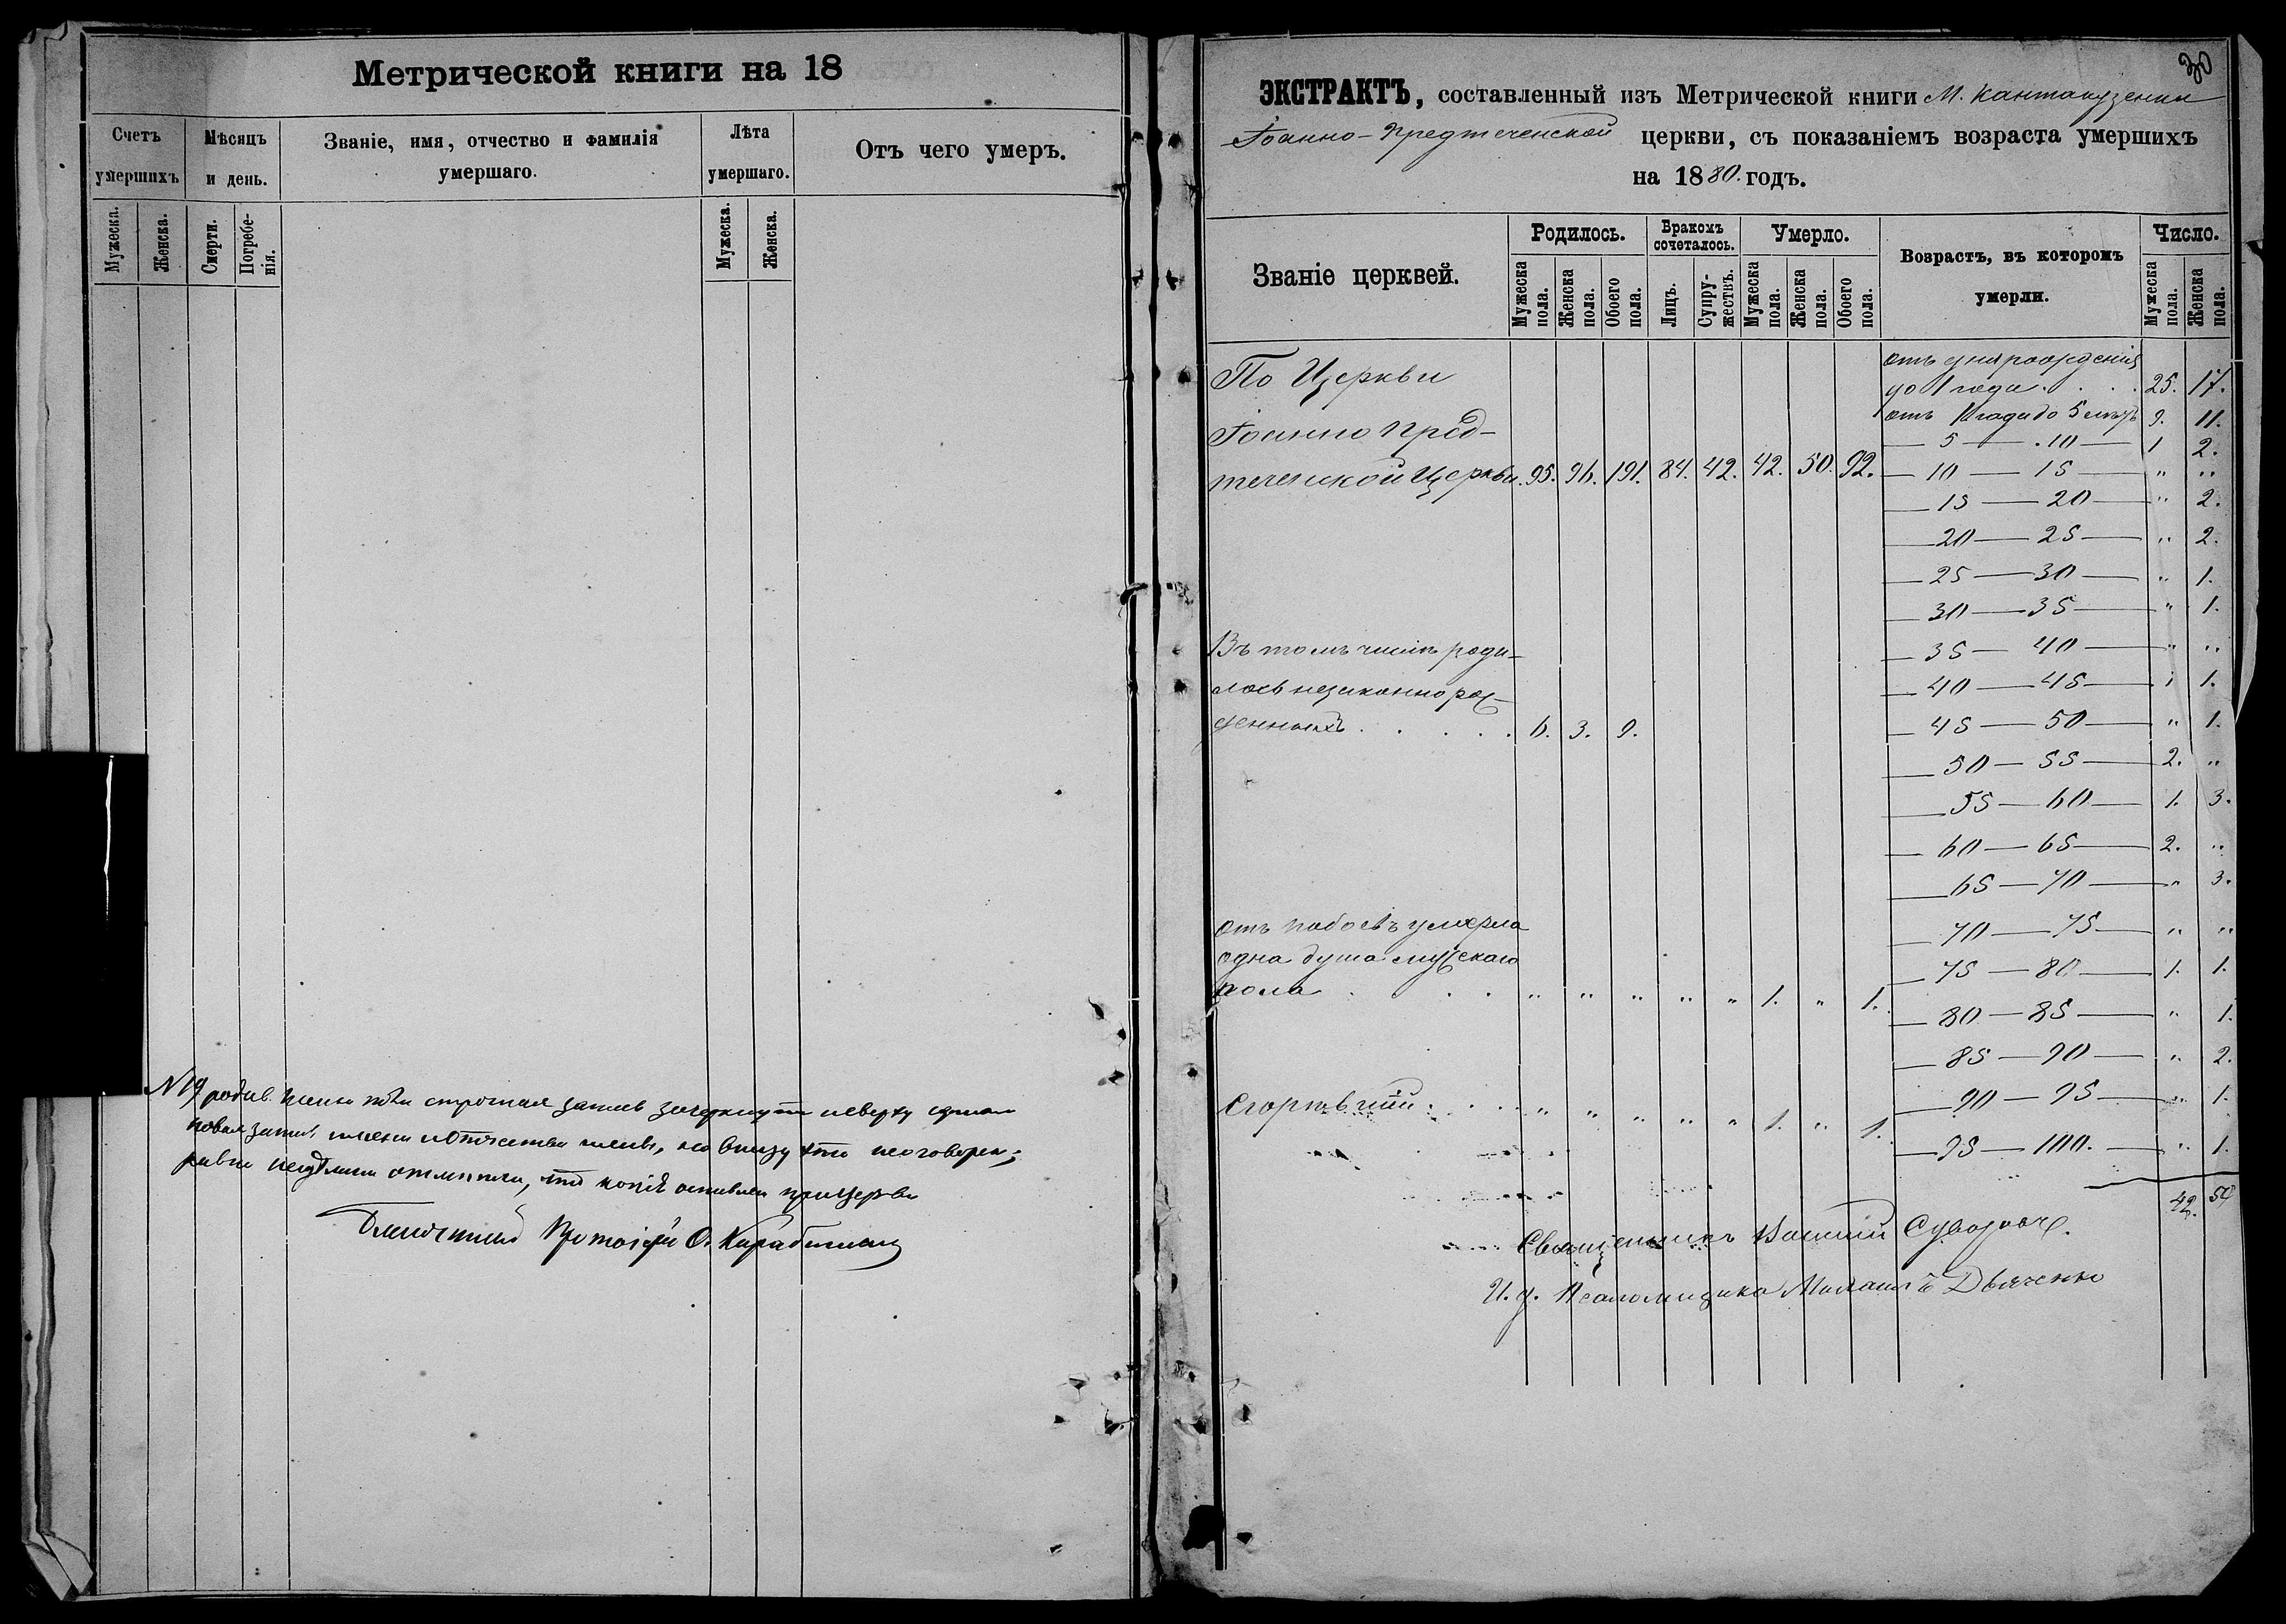 Метрической книги на 18
Счетъ умершихъ
Мѣсяцъ и день.
Званіе, имя, отчество и фамилія умершаго.
Лѣта умершаго.
Отъ чего умеръ.
Мужеска.
Женска.
Смерти.
Погребенія.
Мужеска.
Женска.
N 19
Благочинный Протоіерей
30
ЭКСТРАКТЪ, составленный изъ Метрической книги М. Кантакузенки
Іоанно-Предтеченской церкви, съ показаніемъ возраста умершихъ
на 1880. годъ.
Званіе церквей.
Родилось.
Бракомъ сочеталось.
Умерло.
Возрастъ, въ которомъ умерли.
Число.
Мужеска пола.
Женска пола.
Обоего пола.
Лицъ.
Супружествъ.
Мужеска пола.
Женска пола.
Обоего пола.
Мужеска пола.
Женска пола.
отъ дня рожденія
до 1 года . . . 25. 17.
отъ 1 года до 5 лѣтъ 9. 11.
— 5 — 10 — 1 2.
— 10 — 15 „ „
— 15 — 20 — „ 2.
— 20 — 25 — „ 2.
— 25 — 30 — „ 1.
— 30 — 35 — „ 1.
— 35 — 40 — „ „
— 40 — 45 — 1 1.
— 45 — 50 — „ 1.
— 50 — 55 — 2. „
— 55 — 60 — 1. 3.
— 60 — 65 — 2. „
— 65 — 70 — „ 3.
— 70 — 75 — „ „
— 75 — 80 — 1. 1.
— 80 — 85 — „ 1.
— 85 — 90 — „ 2.
— 90 — 95 — „ 1.
— 95 — 100. — „ 1.
42. 50
По Церкви
Іоанно Пред-
теченской Церкви. 95. 96. 191. 84. 42. 42. 50. 92.
Въ томъ числѣ роди-
лось незаконнорож-
денныхъ . . . . . 6. 3. 9.
отъ побоевъ умерла
одна душа мужскаго
пола . . . „ „ „ „ „ 1. „ 1.
Сгорѣвшій . . . „ „ „ „ „ 1. „ 1.
Священникъ Василій
И. д. Псаломщика Михаилъ Дьяченко